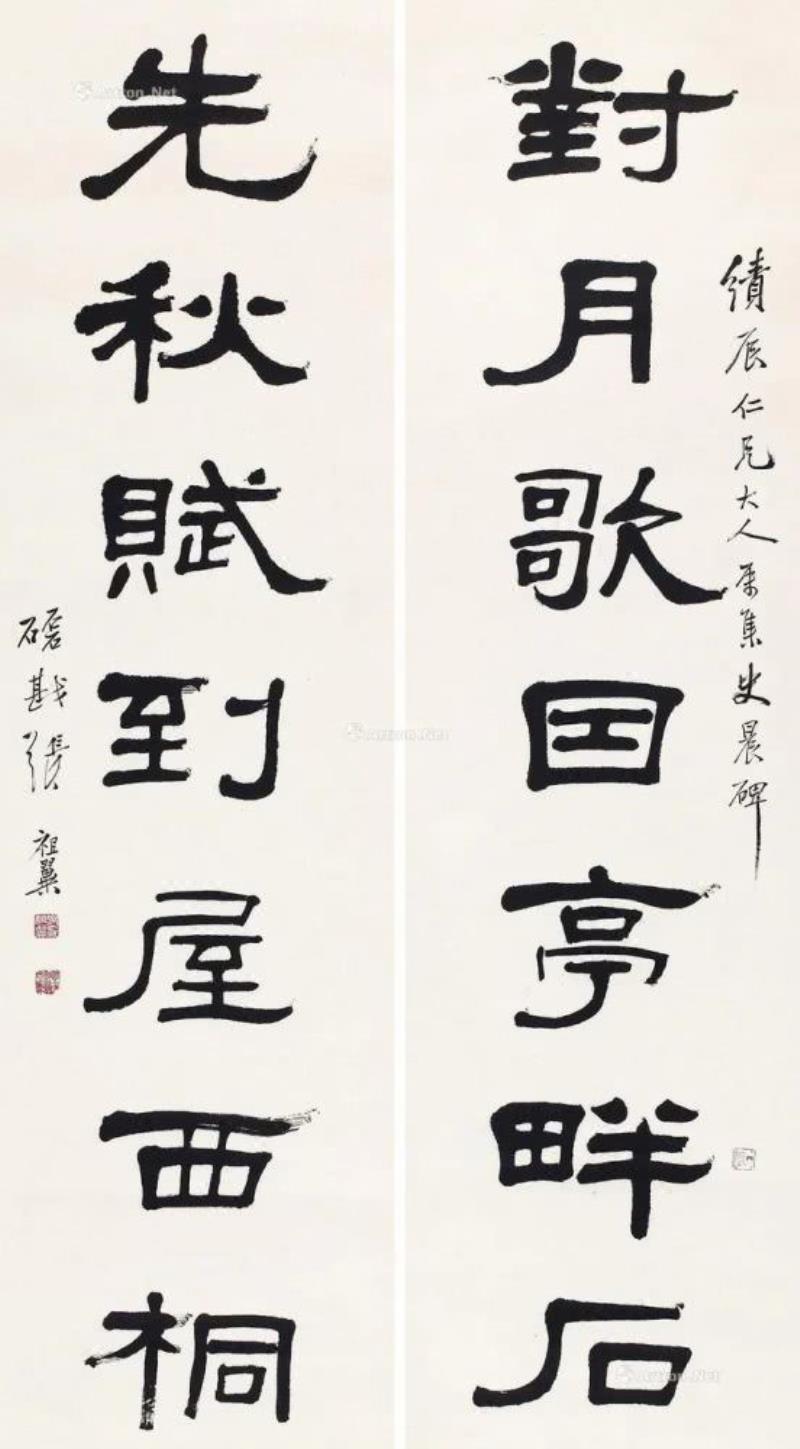 績辰仁兄大人属集史晨碑
對月歌因亭畔石
先秋賦到屋西桐
戡張祖翼
Artron.Net
Artron.Net
Artron.Net